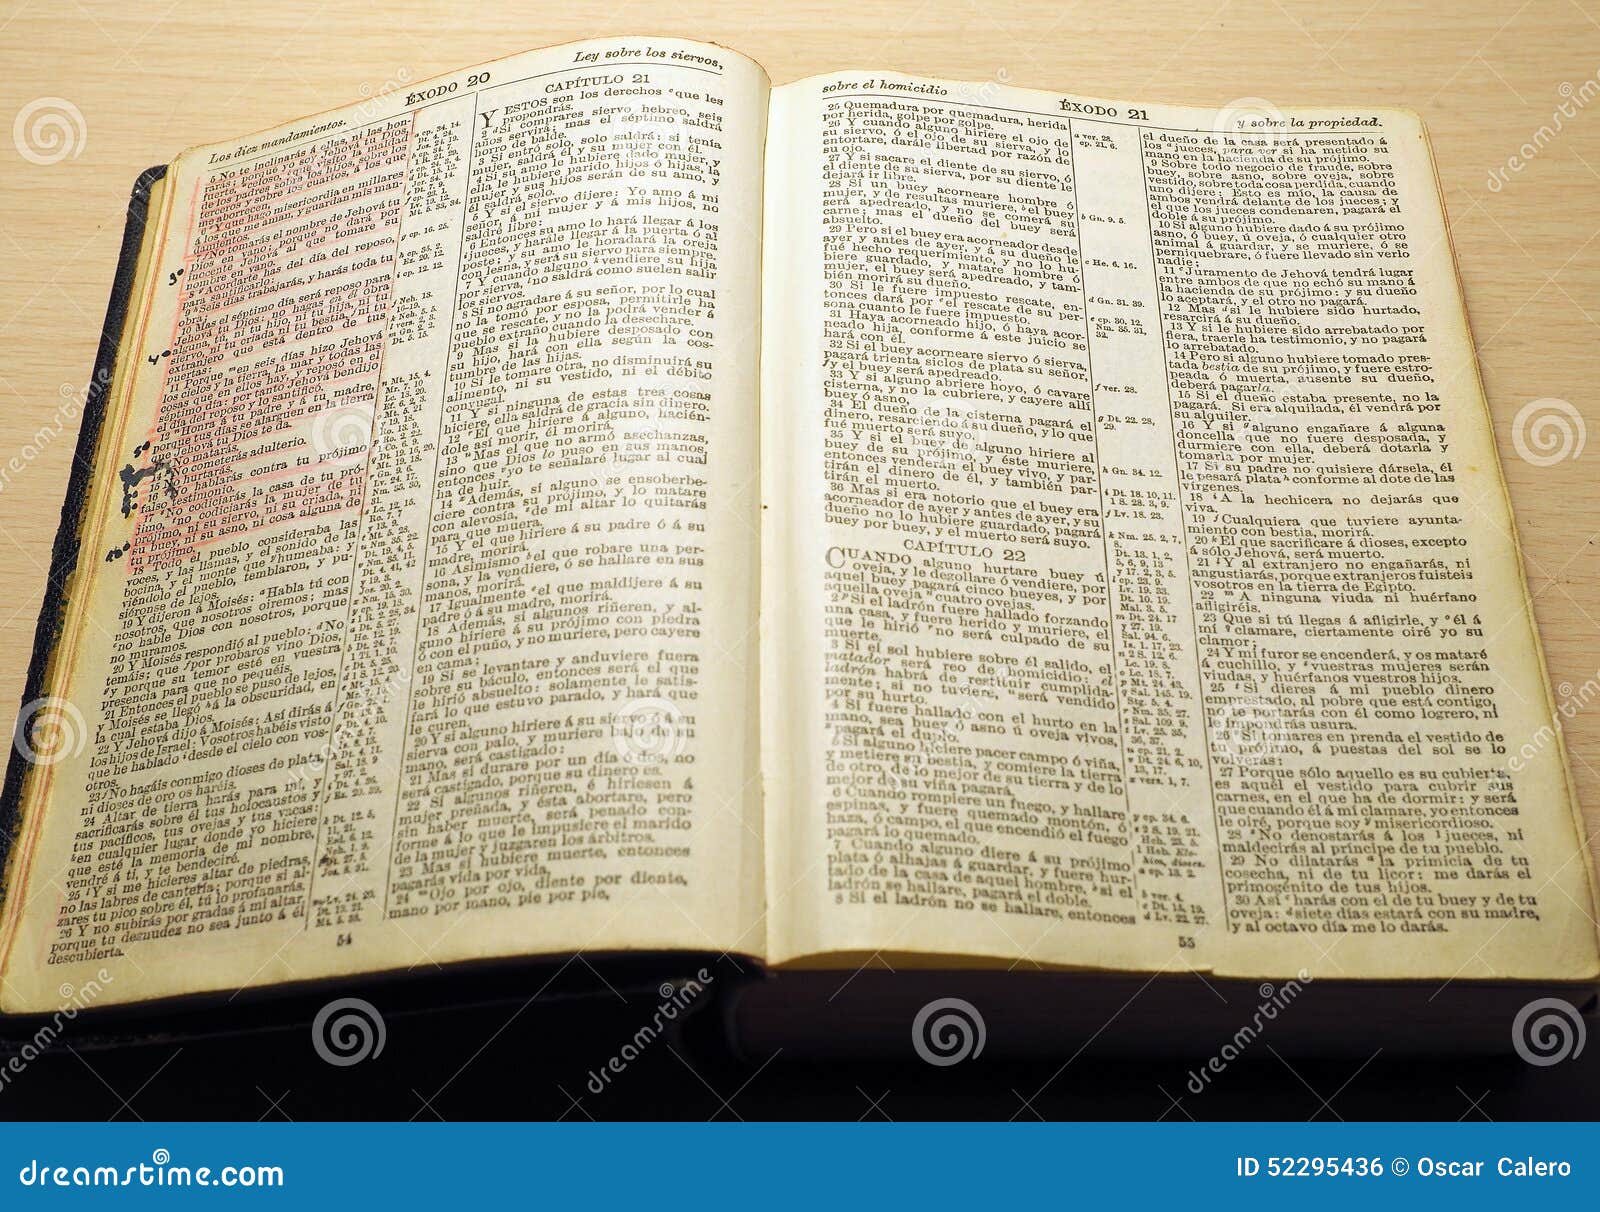 Los diez mandamientos.
ÉXODO 20
Ley sobre los siervos,
5 No te inclinarás á ellas, ni las hon-
rarás; porque yo soy Jehová tu Dios,
fuerte, celoso, que visito la maldad
de los padres sobre los hijos, sobre los
terceros y sobre los cuartos, á los que
me aborrecen,
6 Y que hago misericordia en millares
á los que me aman, y guardan mis man-
damientos.
7 No tomarás el nombre de Jehová tu
Dios en vano; porque no dará por
inocente Jehová al que tomare su
nombre en vano.
8 Acordarte has del día del reposo,
para santificarlo:
9 Seis días trabajarás, y harás toda tu
obra;
10 Mas el séptimo día será reposo para
Jehová tu Dios: no hagas en él obra
alguna, tú, ni tu hijo, ni tu hija, ni tu
siervo, ni tu criada, ni tu bestia, ni tu
extranjero que está dentro de tus
puertas:
11 Porque en seis días hizo Jehová
los cielos y la tierra, la mar y todas las
cosas que en ellos hay, y reposó en el
séptimo día: por tanto Jehová bendijo
el día del reposo y lo santificó.
12 Honra á tu padre y á tu madre,
porque tus días se alarguen en la tierra
que Jehová tu Dios te da.
13 No matarás.
14 No cometerás adulterio.
15 No hurtarás.
16 No hablarás contra tu prójimo
falso testimonio.
17 No codiciarás la casa de tu pró-
jimo, no codiciarás la mujer de tu
prójimo, ni su siervo, ni su criada, ni
su buey, ni su asno, ni cosa alguna de
tu prójimo.
18 Todo el pueblo consideraba las
voces, y las llamas, y el sonido de la
bocina, y el monte que humeaba: y
viéndolo el pueblo, temblaron, y pu-
siéronse de lejos.
19 Y dijeron á Moisés: Habla tú con
nosotros, que nosotros oiremos; mas
no hable Dios con nosotros, porque
no muramos.
20 Y Moisés respondió al pueblo: No
temáis; que por probaros vino Dios,
y porque su temor esté en vuestra
presencia para que no pequéis.
21 Entonces el pueblo se puso de lejos,
y Moisés se llegó á la obscuridad, en
la cual estaba Dios.
22 Y Jehová dijo á Moisés: Así dirás á
los hijos de Israel: Vosotros habéis visto
que he hablado desde el cielo con vos-
otros.
23 No hagáis conmigo dioses de plata,
ni dioses de oro os haréis.
24 Altar de tierra harás para mí, y
sacrificarás sobre él tus holocaustos y
tus pacíficos, tus ovejas y tus vacas:
en cualquier lugar donde yo hiciere
que esté la memoria de mi nombre,
vendré á ti, y te bendeciré.
25 Y si me hicieres altar de piedras,
no las labres de cantería; porque si al-
zares tu pico sobre él, tú lo profanarás.
26 Y no subirás por gradas á mi altar,
porque tu desnudez no sea junto á él
descubierta.
54
CAPÍTULO 21
Y ESTOS son los derechos que les
propondrás.
2 Si comprares siervo hebreo, seis
años servirá; mas el séptimo saldrá
horro de balde.
3 Si entró solo, solo saldrá: si tenía
mujer, saldrá él y su mujer con él.
4 Si su amo le hubiere dado mujer, y
ella le hubiere parido hijos ó hijas, la
mujer y sus hijos serán de su amo, y
él saldrá solo.
5 Y si el siervo dijere: Yo amo á mi
señor, á mi mujer y á mis hijos, no
saldré libre:
6 Entonces su amo lo hará llegar á los
jueces, y harále llegar á la puerta ó al
poste; y su amo le horadará la oreja
con lesna, y será su siervo para siempre.
7 Y cuando alguno vendiere su hija
por sierva, no saldrá como suelen salir
los siervos.
8 Si no agradare á su señor, por lo cual
no la tomó por esposa, permitirle ha
que se rescate, y no la podrá vender á
pueblo extraño cuando la desechare.
9 Mas si la hubiere desposado con
su hijo, hará con ella según la cos-
tumbre de las hijas.
10 Si le tomare otra, no disminuirá su
alimento, ni su vestido, ni el débito
conyugal.
11 Y si ninguna de estas tres cosas
hiciere, ella saldrá de gracia sin dinero.
12 El que hiriere á alguno, hacién-
dole así morir, él morirá.
13 Mas el que no armó asechanzas,
sino que Dios lo puso en sus manos,
entonces yo te señalaré lugar al cual
ha de huir.
14 Además, si alguno se ensoberbe-
ciere contra su prójimo, y lo matare
con alevosía, de mi altar lo quitarás
para que muera.
15 Y el que hiriere á su padre ó á su
madre, morirá.
16 Asimismo el que robare una per-
sona, y la vendiere, ó se hallare en sus
manos, morirá.
17 Igualmente el que maldijere á su
padre ó á su madre, morirá.
18 Además, si algunos riñeren, y al-
guno hiriere á su prójimo con piedra
ó con el puño, y no muriere, pero cayere
en cama;
19 Si se levantare y anduviere fuera
sobre su báculo, entonces será el que
le hirió absuelto: solamente le satis-
fará lo que estuvo parado, y hará que
le curen.
20 Y si alguno hiriere á su siervo ó á su
sierva con palo, y muriere bajo de su
mano, será castigado:
21 Mas si durare por un día ó dos, no
será castigado, porque su dinero es.
22 Si algunos riñeren, é hiriesen á
mujer preñada, y ésta abortare, pero
sin haber muerte, será penado con-
forme á lo que le impusiere el marido
de la mujer y juzgaren los árbitros.
23 Mas si hubiere muerte, entonces
pagarás vida por vida,
24 Ojo por ojo, diente por diente,
mano por mano, pie por pie,
sobre el homicidio
ÉXODO 21
y sobre la propiedad.
25 Quemadura por quemadura, herida
por herida, golpe por golpe.
26 Y cuando alguno hiriere el ojo de
su siervo, ó el ojo de su sierva, y lo
entortare, darále libertad por razón de
su ojo.
27 Y si sacare el diente de su siervo, ó
el diente de su sierva, por su diente le
dejará ir libre.
28 Si un buey acorneare hombre ó
mujer, y de resultas muriere, el buey
será apedreado, y no se comerá su
carne; mas el dueño del buey será
absuelto.
29 Pero si el buey era acorneador desde
ayer y antes de ayer, y á su dueño le
fué hecho requerimiento, y no lo hu-
biere guardado, y matare hombre ó
mujer, el buey será apedreado, y tam-
bién morirá su dueño.
30 Si le fuere impuesto rescate, en-
tonces dará por el rescate de su per-
sona cuanto le fuere impuesto.
31 Haya acorneado hijo, ó haya acor-
neado hija, conforme á este juicio se
hará con él.
32 Si el buey acorneare siervo ó sierva,
pagará treinta siclos de plata su señor,
y el buey será apedreado.
33 Y si alguno abriere hoyo, ó cavare
cisterna, y no la cubriere, y cayere allí
buey ó asno,
34 El dueño de la cisterna pagará el
dinero, resarciendo á su dueño, y lo que
fué muerto será suyo.
35 Y si el buey de alguno hiriere al
buey de su prójimo, y éste muriere,
entonces venderán el buey vivo, y par-
tirán el dinero de él, y también par-
tirán el muerto.
36 Mas si era notorio que el buey era
acorneador de ayer y antes de ayer, y su
dueño no lo hubiere guardado, pagará
buey por buey, y el muerto será suyo.
CAPÍTULO 22
CUANDO alguno hurtare buey ú
oveja, y le degollare ó vendiere, por
aquel buey pagará cinco bueyes, y por
aquella oveja cuatro ovejas.
2 Si el ladrón fuere hallado forzando
una casa, y fuere herido y muriere, el
que le hirió no será culpado de su
muerte.
3 Si el sol hubiere sobre él salido, el
matador será reo de homicidio: el
ladrón habrá de restituir cumplida-
mente; si no tuviere, será vendido
por su hurto.
4 Si fuere hallado con el hurto en la
mano, sea buey ó asno ú oveja vivos,
pagará el duplo.
5 Si alguno hiciere pacer campo ó viña,
y metiere su bestia, y comiere la tierra
de otro, de lo mejor de su tierra y de lo
mejor de su viña pagará.
6 Cuando rompiere un fuego, y hallare
espinas, y fuere quemado montón, ó
haza, ó campo, el que encendió el fuego
pagará lo quemado.
7 Cuando alguno diere á su prójimo
plata ó alhajas á guardar, y fuere hur-
tado de la casa de aquel hombre, si el
ladrón se hallare, pagará el doble.
8 Si el ladrón no se hallare, entonces
55
el dueño de la casa será presentado á
los jueces, para ver si ha metido su
mano en la hacienda de su prójimo.
9 Sobre todo negocio de fraude, sobre
buey, sobre asno, sobre oveja, sobre
vestido, sobre toda cosa perdida, cuando
uno dijere: Esto es mío, la causa de
ambos vendrá delante de los jueces; y
el que los jueces condenaren, pagará el
doble á su prójimo.
10 Si alguno hubiere dado á su prójimo
asno, ó buey, ú oveja, ó cualquier otro
animal á guardar, y se muriere, ó se
perniquebrare, ó fuere llevado sin verlo
nadie;
11 Juramento de Jehová tendrá lugar
entre ambos de que no echó su mano á
la hacienda de su prójimo: y su dueño
lo aceptará, y el otro no pagará.
12 Mas si le hubiere sido hurtado,
resarcirá á su dueño.
13 Y si le hubiere sido arrebatado por
fiera, traerle ha testimonio, y no pagará
lo arrebatado.
14 Pero si alguno hubiere tomado pres-
tada bestia de su prójimo, y fuere estro-
peada, ó muerta, ausente su dueño,
deberá pagarla.
15 Si el dueño estaba presente, no la
pagará. Si era alquilada, él vendrá por
su alquiler.
16 Y si alguno engañare á alguna
doncella que no fuere desposada, y
durmiere con ella, deberá dotarla y
tomarla por mujer.
17 Si su padre no quisiere dársela, él
le pesará plata conforme al dote de las
vírgenes.
18 A la hechicera no dejarás que
viva.
19 Cualquiera que tuviere ayunta-
miento con bestia, morirá.
20 El que sacrificare á dioses, excepto
á sólo Jehová, será muerto.
21 Y al extranjero no engañarás, ni
angustiarás, porque extranjeros fuisteis
vosotros en la tierra de Egipto.
22 A ninguna viuda ni huérfano
afligiréis.
23 Que si tú llegas á afligirle, y él á
mí clamare, ciertamente oiré yo su
clamor;
24 Y mi furor se encenderá, y os mataré
á cuchillo, y vuestras mujeres serán
viudas, y huérfanos vuestros hijos.
25 Si dieres á mi pueblo dinero
emprestado, al pobre que está contigo,
no te portarás con él como logrero, ni
le impondrás usura.
26 Si tomares en prenda el vestido de
tu prójimo, á puestas del sol se lo
volverás:
27 Porque sólo aquello es su cubierta,
es aquél el vestido para cubrir sus
carnes, en el que ha de dormir: y será
que cuando él á mí clamare, yo entonces
le oiré, porque soy misericordioso.
28 No denostarás á los jueces, ni
maldecirás al príncipe de tu pueblo.
29 No dilatarás la primicia de tu
cosecha, ni de tu licor: me darás el
primogénito de tus hijos.
30 Así harás con el de tu buey y de tu
oveja: siete días estará con su madre,
y al octavo día me lo darás.
dreamstime.com
ID 52295436 © Oscar Calero